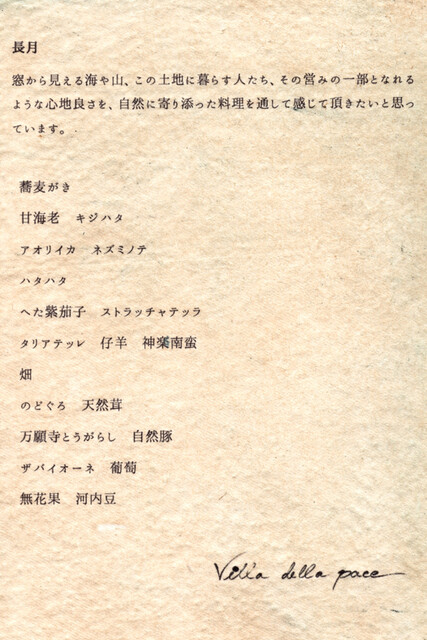 長月
窓から見える海や山、この土地に暮らす人たち、その営みの一部となれる
ような心地良さを、自然に寄り添った料理を通して感じて頂きたいと思っ
ています。
蕎麦がき
甘海老　キジハタ
アオリイカ　ネズミノテ
ハタハタ
へた紫茄子　ストラッチャテッラ
タリアテッレ　仔羊　神楽南蛮
畑
のどぐろ　天然茸
万願寺とうがらし　自然豚
ザバイオーネ　葡萄
無花果　河内豆
Villa della pace